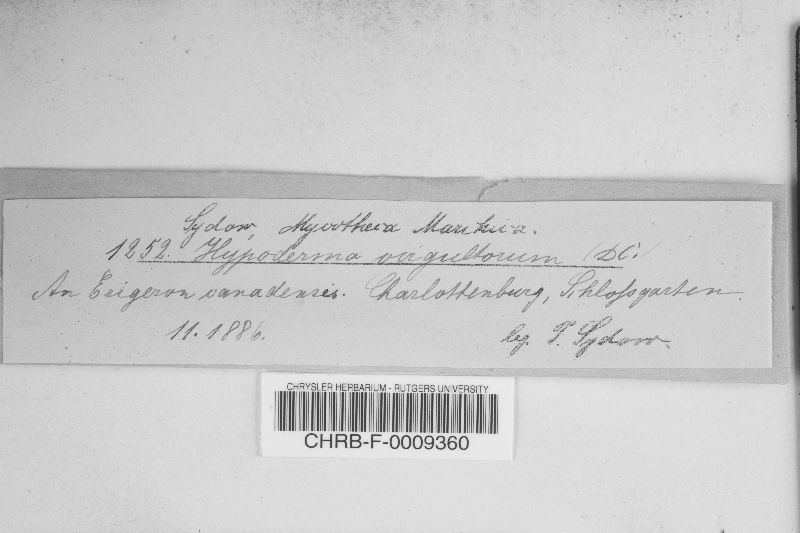 Sydow, Mycotheca Marchica.
1252. Hypoderma virgultorum (DC.)
An Erigeron canadensis. Charlottenburg, Schloßgarten.
11. 1886.
leg. P. Sydow.
CHRYSLER HERBARIUM - RUTGERS UNIVERSITY
CHRB-F-0009360